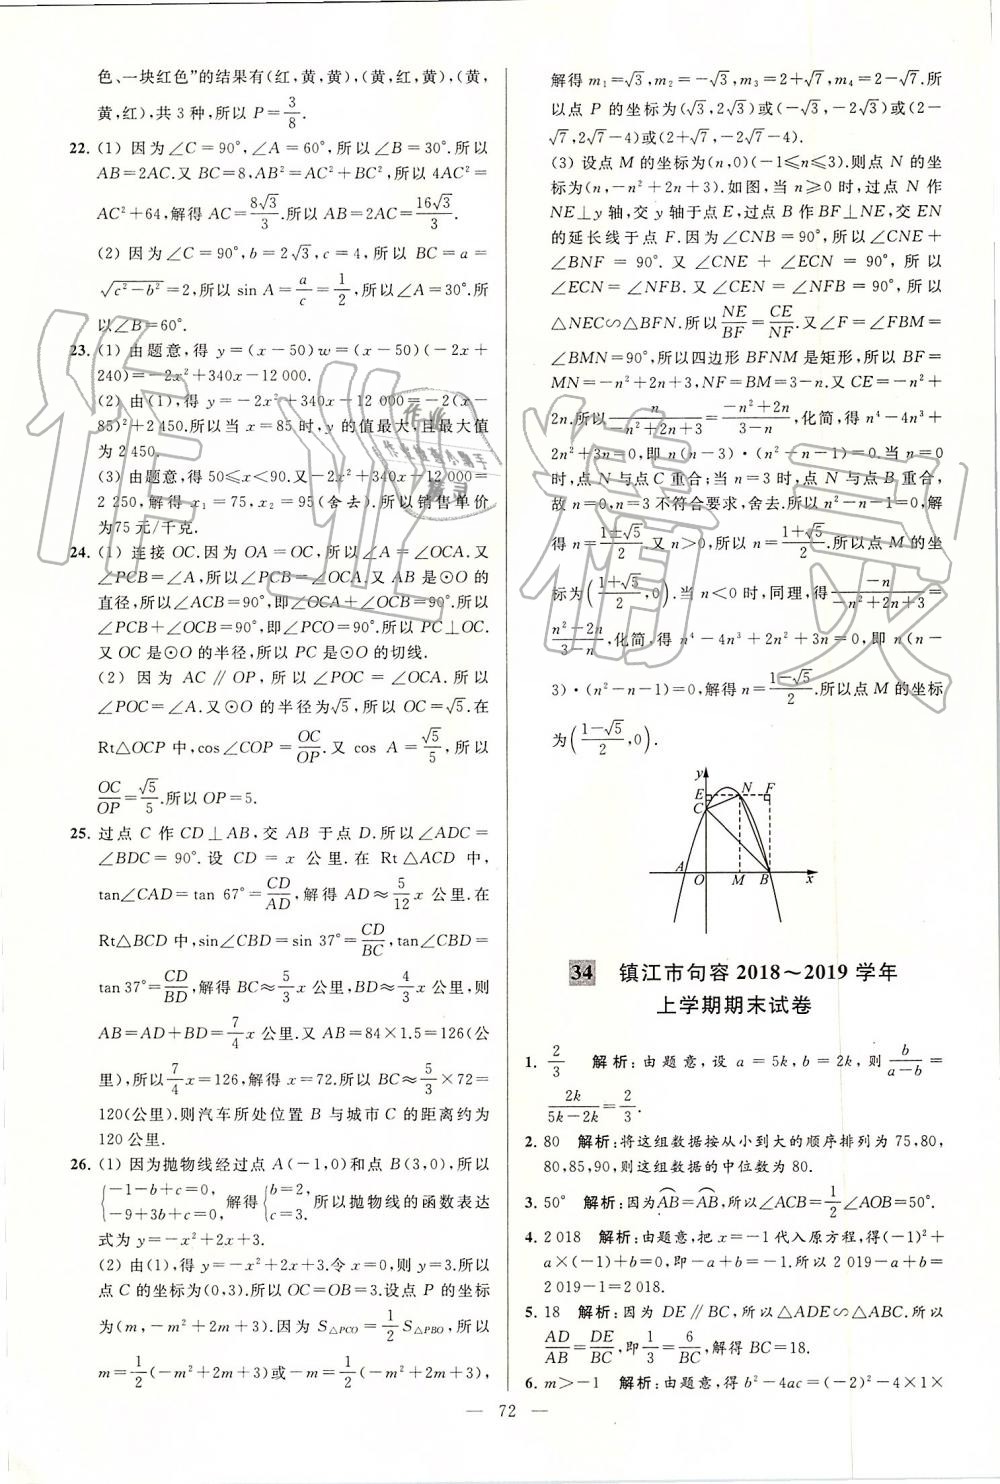 色、一块红色”的结果有(红,黄,黄),(黄,红,黄),(黄,
黄,红),共3种,所以P=3/8.
22. (1) 因为∠C=90°,∠A=60°,所以∠B=30°.所以
AB=2AC.又BC=8,AB²=AC²+BC²,所以4AC²=
AC²+64,解得AC=8√3/3.所以AB=2AC=16√3/3.
(2) 因为∠C=90°,b=2√3,c=4,所以BC=a=
√(c²-b²)=2,所以sin A=a/c=1/2,所以∠A=30°.所
以∠B=60°.
23. (1) 由题意,得y=(x-50)w=(x-50)(-2x+
240)=-2x²+340x-12 000.
(2) 由(1),得y=-2x²+340x-12 000=-2(x-
85)²+2 450.所以当x=85时,y的值最大,且最大值
为2 450.
(3) 由题意,得50≤x<90.又-2x²+340x-12 000=
2 250,解得x₁=75,x₂=95(舍去).所以销售单价
为75元/千克.
24. (1) 连接OC.因为OA=OC,所以∠A=∠OCA.又
∠PCB=∠A,所以∠PCB=∠OCA.又AB是⊙O的
直径,所以∠ACB=90°,即∠OCA+∠OCB=90°.所以
∠PCB+∠OCB=90°,即∠PCO=90°.所以PC⊥OC.
又OC是⊙O的半径,所以PC是⊙O的切线.
(2) 因为AC∥OP,所以∠POC=∠OCA.所以
∠POC=∠A.又⊙O的半径为√5,所以OC=√5.在
Rt△OCP中,cos∠COP=OC/OP.又cos A=√5/5,所以
OC/OP=√5/5.所以OP=5.
25. 过点C作CD⊥AB,交AB于点D.所以∠ADC=
∠BDC=90°.设CD=x公里.在Rt△ACD中,
tan∠CAD=tan 67°=CD/AD,解得AD≈5/12x公里.在
Rt△BCD中,sin∠CBD=sin 37°=CD/BC,tan∠CBD=
tan 37°=CD/BD,解得BC≈5/3x公里,BD≈4/3x公里,则
AB=AD+BD=7/4x公里.又AB=84×1.5=126(公
里),所以7/4x=126,解得x=72.所以BC≈5/3×72=
120(公里).则汽车所处位置B与城市C的距离约为
120公里.
26. (1) 因为抛物线经过点A(-1,0)和点B(3,0),所以
{-1-b+c=0, -9+3b+c=0, 解得{b=2, c=3. 所以抛物线的函数表达
式为y=-x²+2x+3.
(2) 由(1),得y=-x²+2x+3.令x=0,则y=3.所以
点C的坐标为(0,3).所以OC=OB=3.设点P的坐标
为(m,-m²+2m+3).因为S△PCO=1/2S△PBO,所以
m=1/2(-m²+2m+3)或-m=1/2(-m²+2m+3),
解得m₁=√3,m₂=-√3,m₃=2+√7,m₄=2-√7.所
以点P的坐标为(√3,2√3)或(-√3,-2√3)或(2-
√7,2√7-4)或(2+√7,-2√7-4).
(3) 设点M的坐标为(n,0)(-1≤n≤3).则点N的坐
标为(n,-n²+2n+3).如图,当n≥0时,过点N作
NE⊥y轴,交y轴于点E,过点B作BF⊥NE,交EN
的延长线于点F.因为∠CNB=90°,所以∠CNE+
∠BNF=90°.又∠CNE+∠ECN=90°,所以
∠ECN=∠NFB.又∠CEN=∠NFB=90°,所以
△NEC∽△BFN.所以NE/BF=CE/NF.又∠F=∠FBM=
∠BMN=90°,所以四边形BFNM是矩形,所以BF=
MN=-n²+2n+3,NF=BM=3-n.又CE=-n²+
2n.所以n/(-n²+2n+3)=(-n²+2n)/(3-n),化简,得n⁴-4n³+
2n²+3n=0,即n(n-3)·(n²-n-1)=0.当n=0
时,点N与点C重合;当n=3时,点N与点B重合,
故n=0,n=3不符合要求,舍去.所以n²-n-1=0,解
得n=(1±√5)/2.又n>0,所以n=(1+√5)/2.所以点M的坐
标为((1+√5)/2,0).当n<0时,同理,得-n/(-n²+2n+3)=
(n²-2n)/(3-n),化简,得n⁴-4n³+2n²+3n=0,即n(n-
3)·(n²-n-1)=0,解得n=(1-√5)/2.所以点M的坐标
为((1-√5)/2,0).
y
E N F
C
A O M B x
34 镇江市句容2018～2019学年
上学期期末试卷
1. 2/3 解析:由题意,设a=5k,b=2k,则b/(a-b)=
2k/(5k-2k)=2/3.
2. 80 解析:将这组数据按从小到大的顺序排列为75,80,
80,85,90,则这组数据的中位数为80.
3. 50° 解析:因为AB⌒=AB⌒,所以∠ACB=1/2∠AOB=50°.
4. 2 018 解析:由题意,把x=-1代入原方程,得(-1)²+
a×(-1)+b=0,即-a+b=-1.所以2 019-a+b=
2 019-1=2 018.
5. 18 解析:因为DE∥BC,所以△ADE∽△ABC.所以
AD/AB=DE/BC,即1/3=6/BC,解得BC=18.
6. m>-1 解析:由题意,得b²-4ac=(-2)²-4×1×
— 72 —
作业精灵